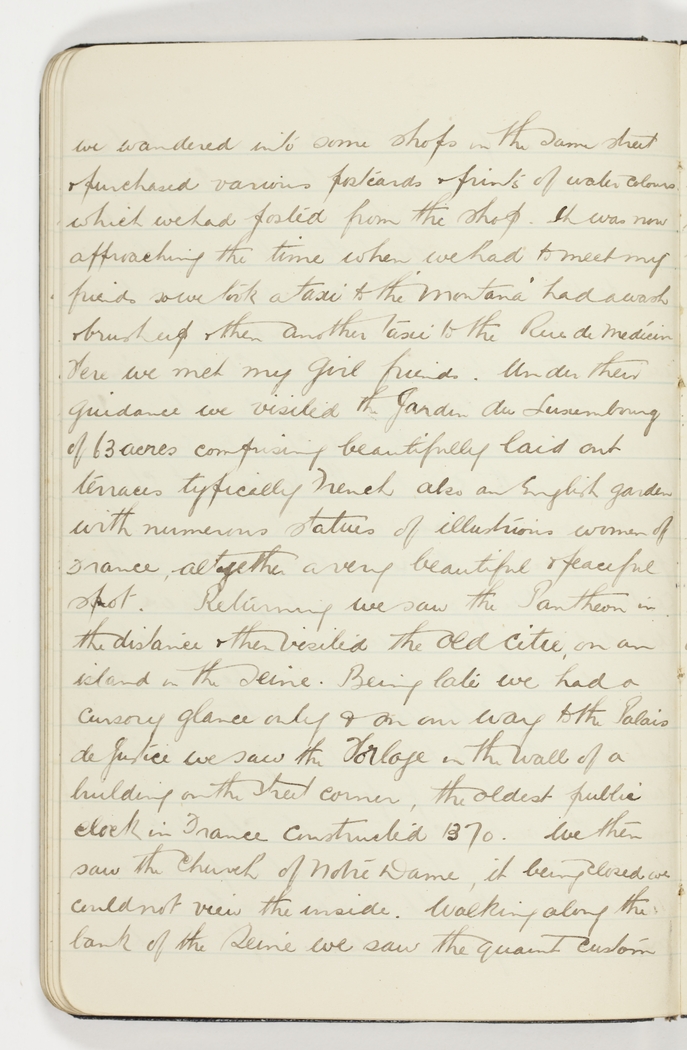 we wandered into some shops in the same street
& purchased various postcards & prints of water colours
which we had posted from the shop. It was now
approaching the time when we had to meet my
friends so we took a taxi to the "Montana" had a wash
& brush up & then another taxi to the Rue de Medicin
Here we met my Girl friends. Under their
guidance we visited the Jardin du Luxembourg
of 63 acres comprising beautifully laid out
terraces typically French also an English garden
with numerous statues of illustrious women of
France, altogether a very beautiful & peaceful
spot. Returning we saw the Pantheon in
the distance & then visited the Old Citie, on an
island in the Seine. Being late we had a
cursory glance only & on our way to the Palais
de Justice we saw the Horloge in the wall of a
building on the street corner, the oldest public
clock in France constructed 1370. We then
saw the Church of Notre Dame, it being closed we
could not view the inside. Walking along the
bank of the Seine we saw the quaint custom